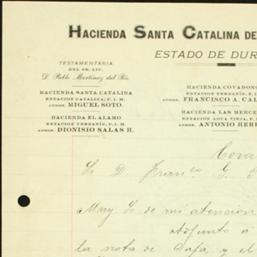 HACIENDA SANTA CATALINA DE
ESTADO DE DUR
TESTAMENTARIA
DEL SR. LIC.
D. Pablo Martínez del Río.
HACIENDA SANTA CATALINA
ESTACION CATALINA, F. I. M.
ADMOR. MIGUEL SOTO.
HACIENDA EL ALAMO
ESTACION YERBANIS, F. I. M.
ADMOR. DIONISIO SALAS H.
HACIENDA COVADONG
ESTACION YERBANIS, F.
ADMOR. FRANCISCO A. CAL
HACIENDA LAS MERCE
ANTONIO HERR
Cova
S. D. Franco G.
Muy S. de mi atencion
Adjunto a
la nota de Caja y el